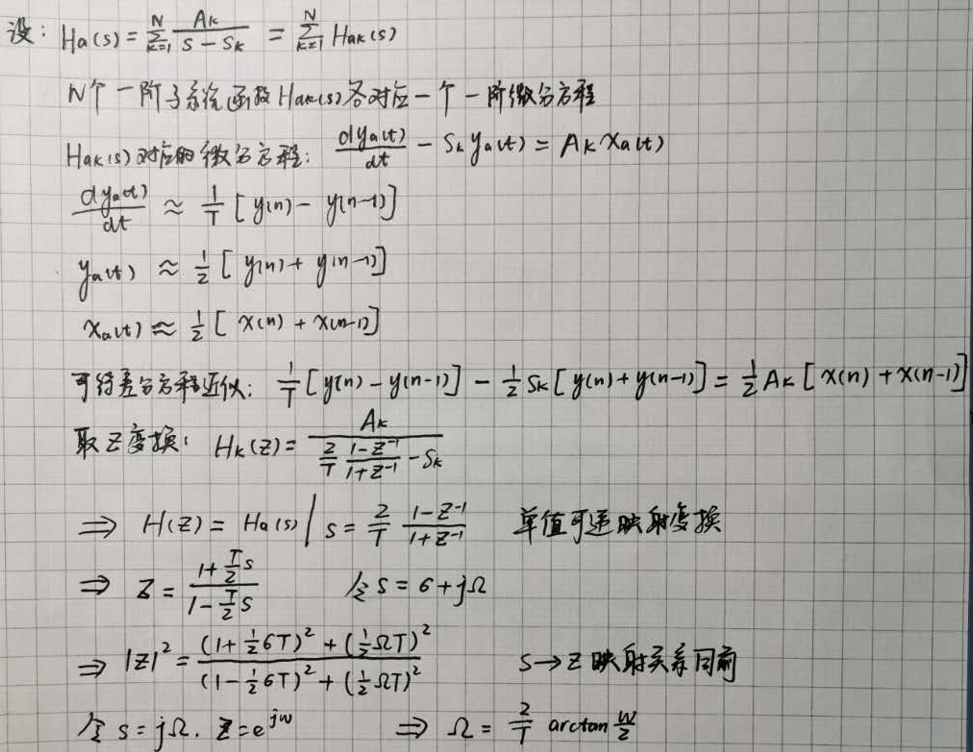 设: Ha(s) = \sum_{k=1}^{N} \frac{A_k}{s - s_k} = \sum_{k=1}^{N} Hak(s)
N个一阶子系统函数Hak(s)各对应一个一阶微分方程
Hak(s)对应的微分方程: \frac{dy_a(t)}{dt} - S_k y_a(t) = A_k x_a(t)
\frac{dy_a(t)}{dt} ≈ \frac{1}{T} [y(n) - y(n-1)]
y_a(t) ≈ \frac{1}{2} [y(n) + y(n-1)]
x_a(t) ≈ \frac{1}{2} [x(n) + x(n-1)]
可得差分方程近似: \frac{1}{T} [y(n) - y(n-1)] - \frac{1}{2} S_k [y(n) + y(n-1)] = \frac{1}{2} A_k [x(n) + x(n-1)]
取Z变换: H_k(z) = \frac{A_k}{\frac{2}{T} \frac{1-z^{-1}}{1+z^{-1}} - S_k}
⇒ H(z) = Ha(s) | s = \frac{2}{T} \frac{1-z^{-1}}{1+z^{-1}} 单值可逆映射变换
⇒ z = \frac{1+\frac{T}{2}s}{1-\frac{T}{2}s} 令 s = σ + jΩ
⇒ |z|^2 = \frac{(1+\frac{1}{2}σT)^2 + (\frac{1}{2}ΩT)^2}{(1-\frac{1}{2}σT)^2 + (\frac{1}{2}ΩT)^2} S→Z 映射关系同前
令 s = jΩ. z = e^{jw} ⇒ Ω = \frac{2}{T} arctan \frac{w}{2}